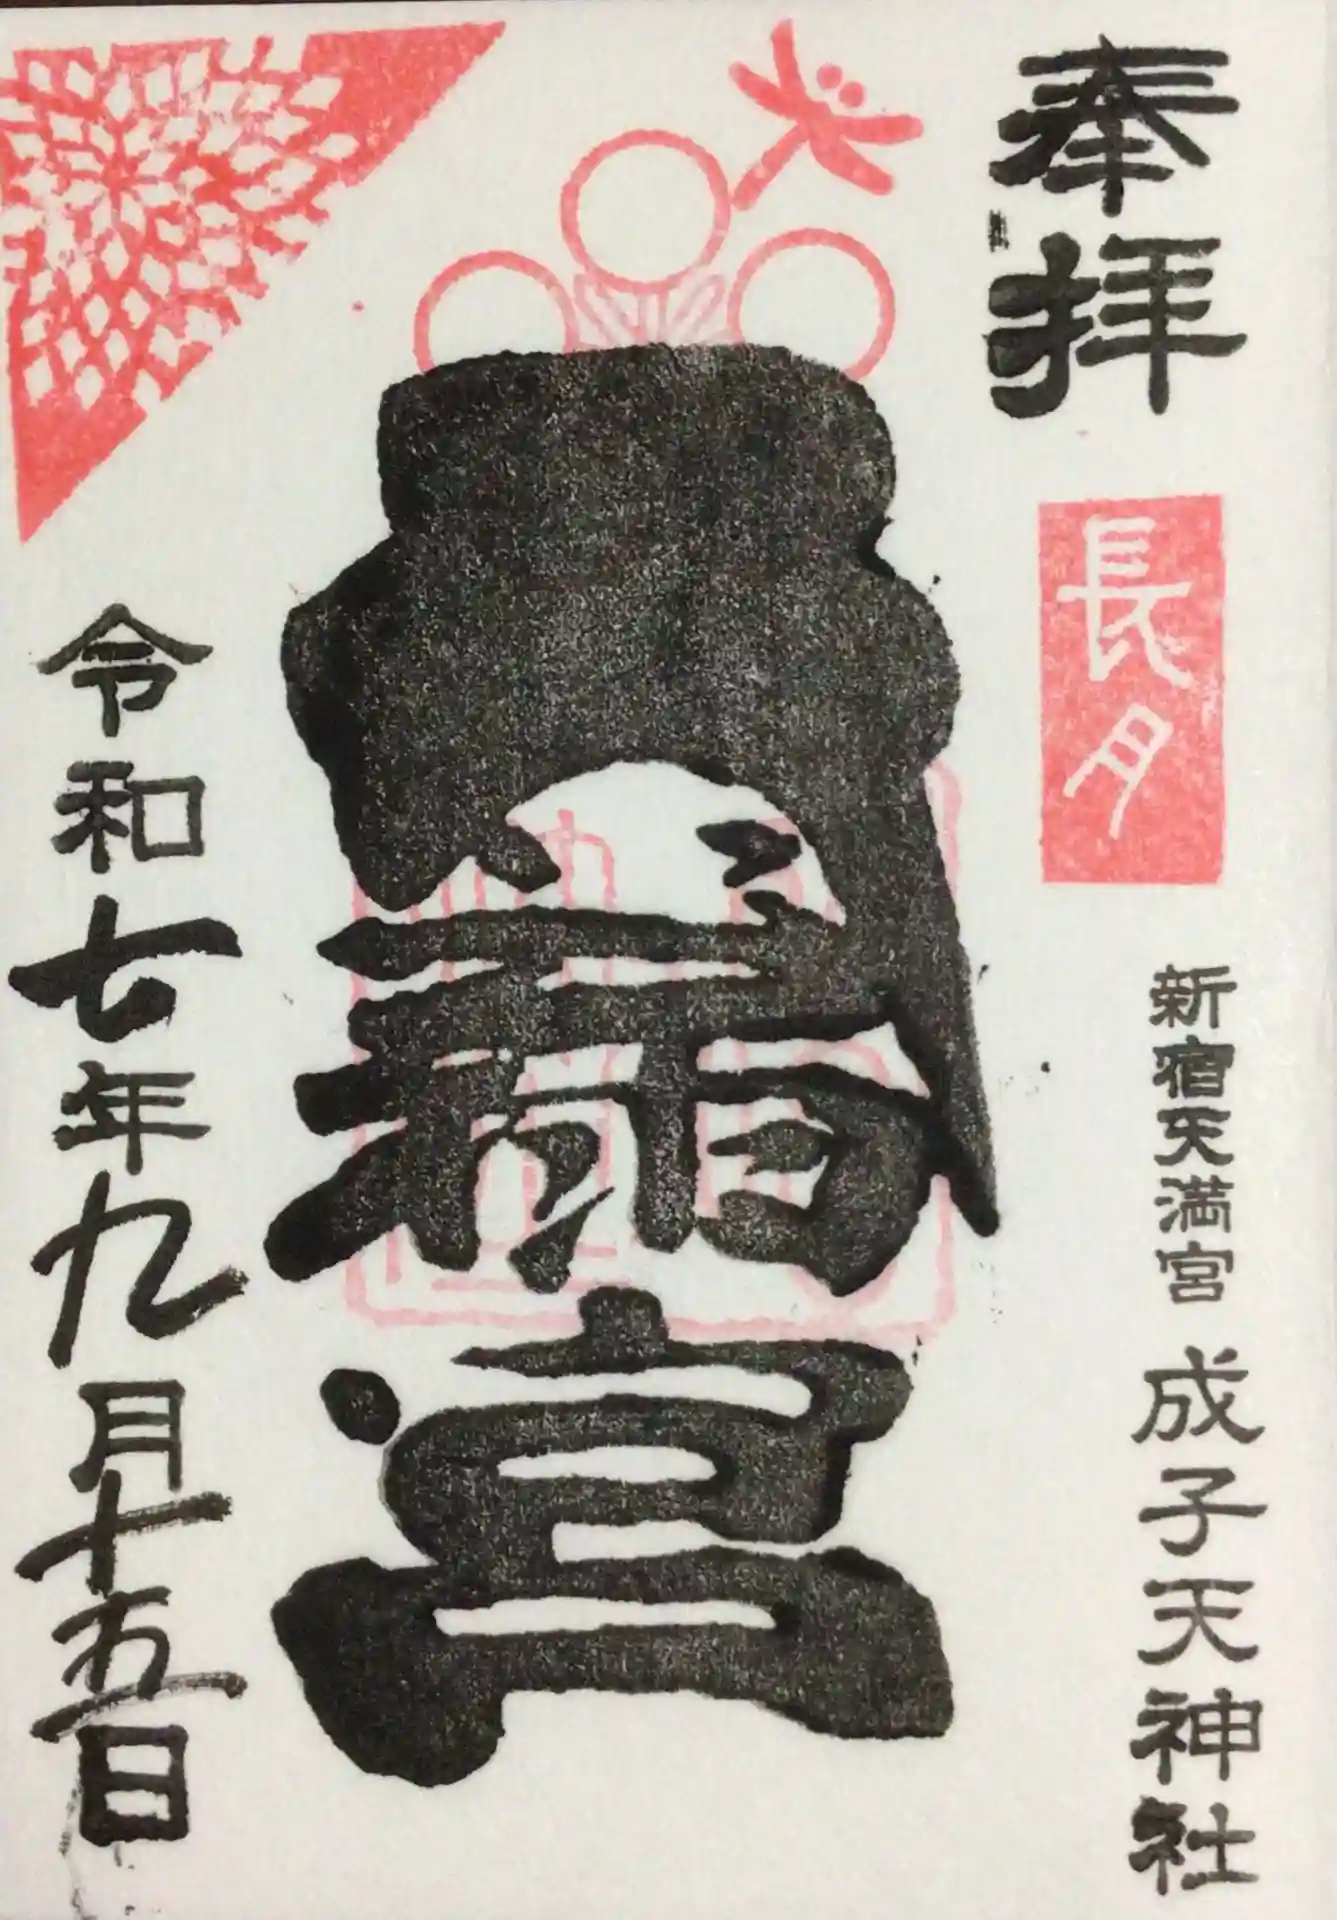 奉拝
長月
新宿天満宮 成子天神社
令和七年九月十五日